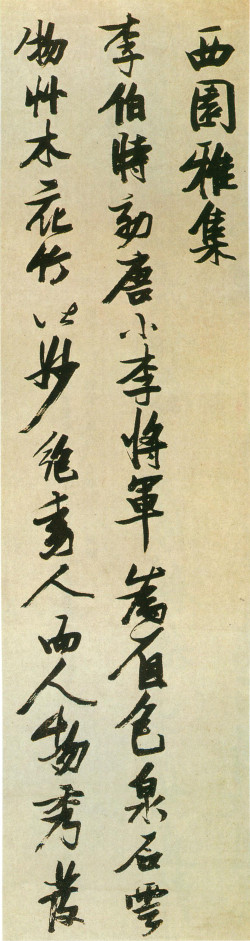 西園雅集
李伯時効唐小李將軍為着色泉石雲
物艸木花竹皆妙絶動人而人物秀發